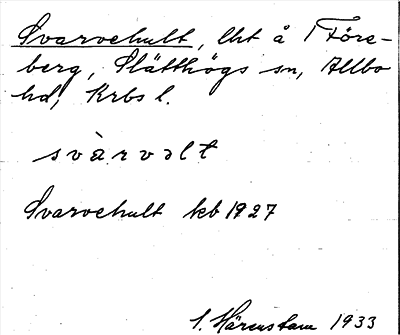 Svarvehult, lht å 1 Före-
berg, Slätthögs sn, Allbo
hd, Krbs l.
svàrvəlt
Svarvehult kb 1927
S. Härenstam 1933